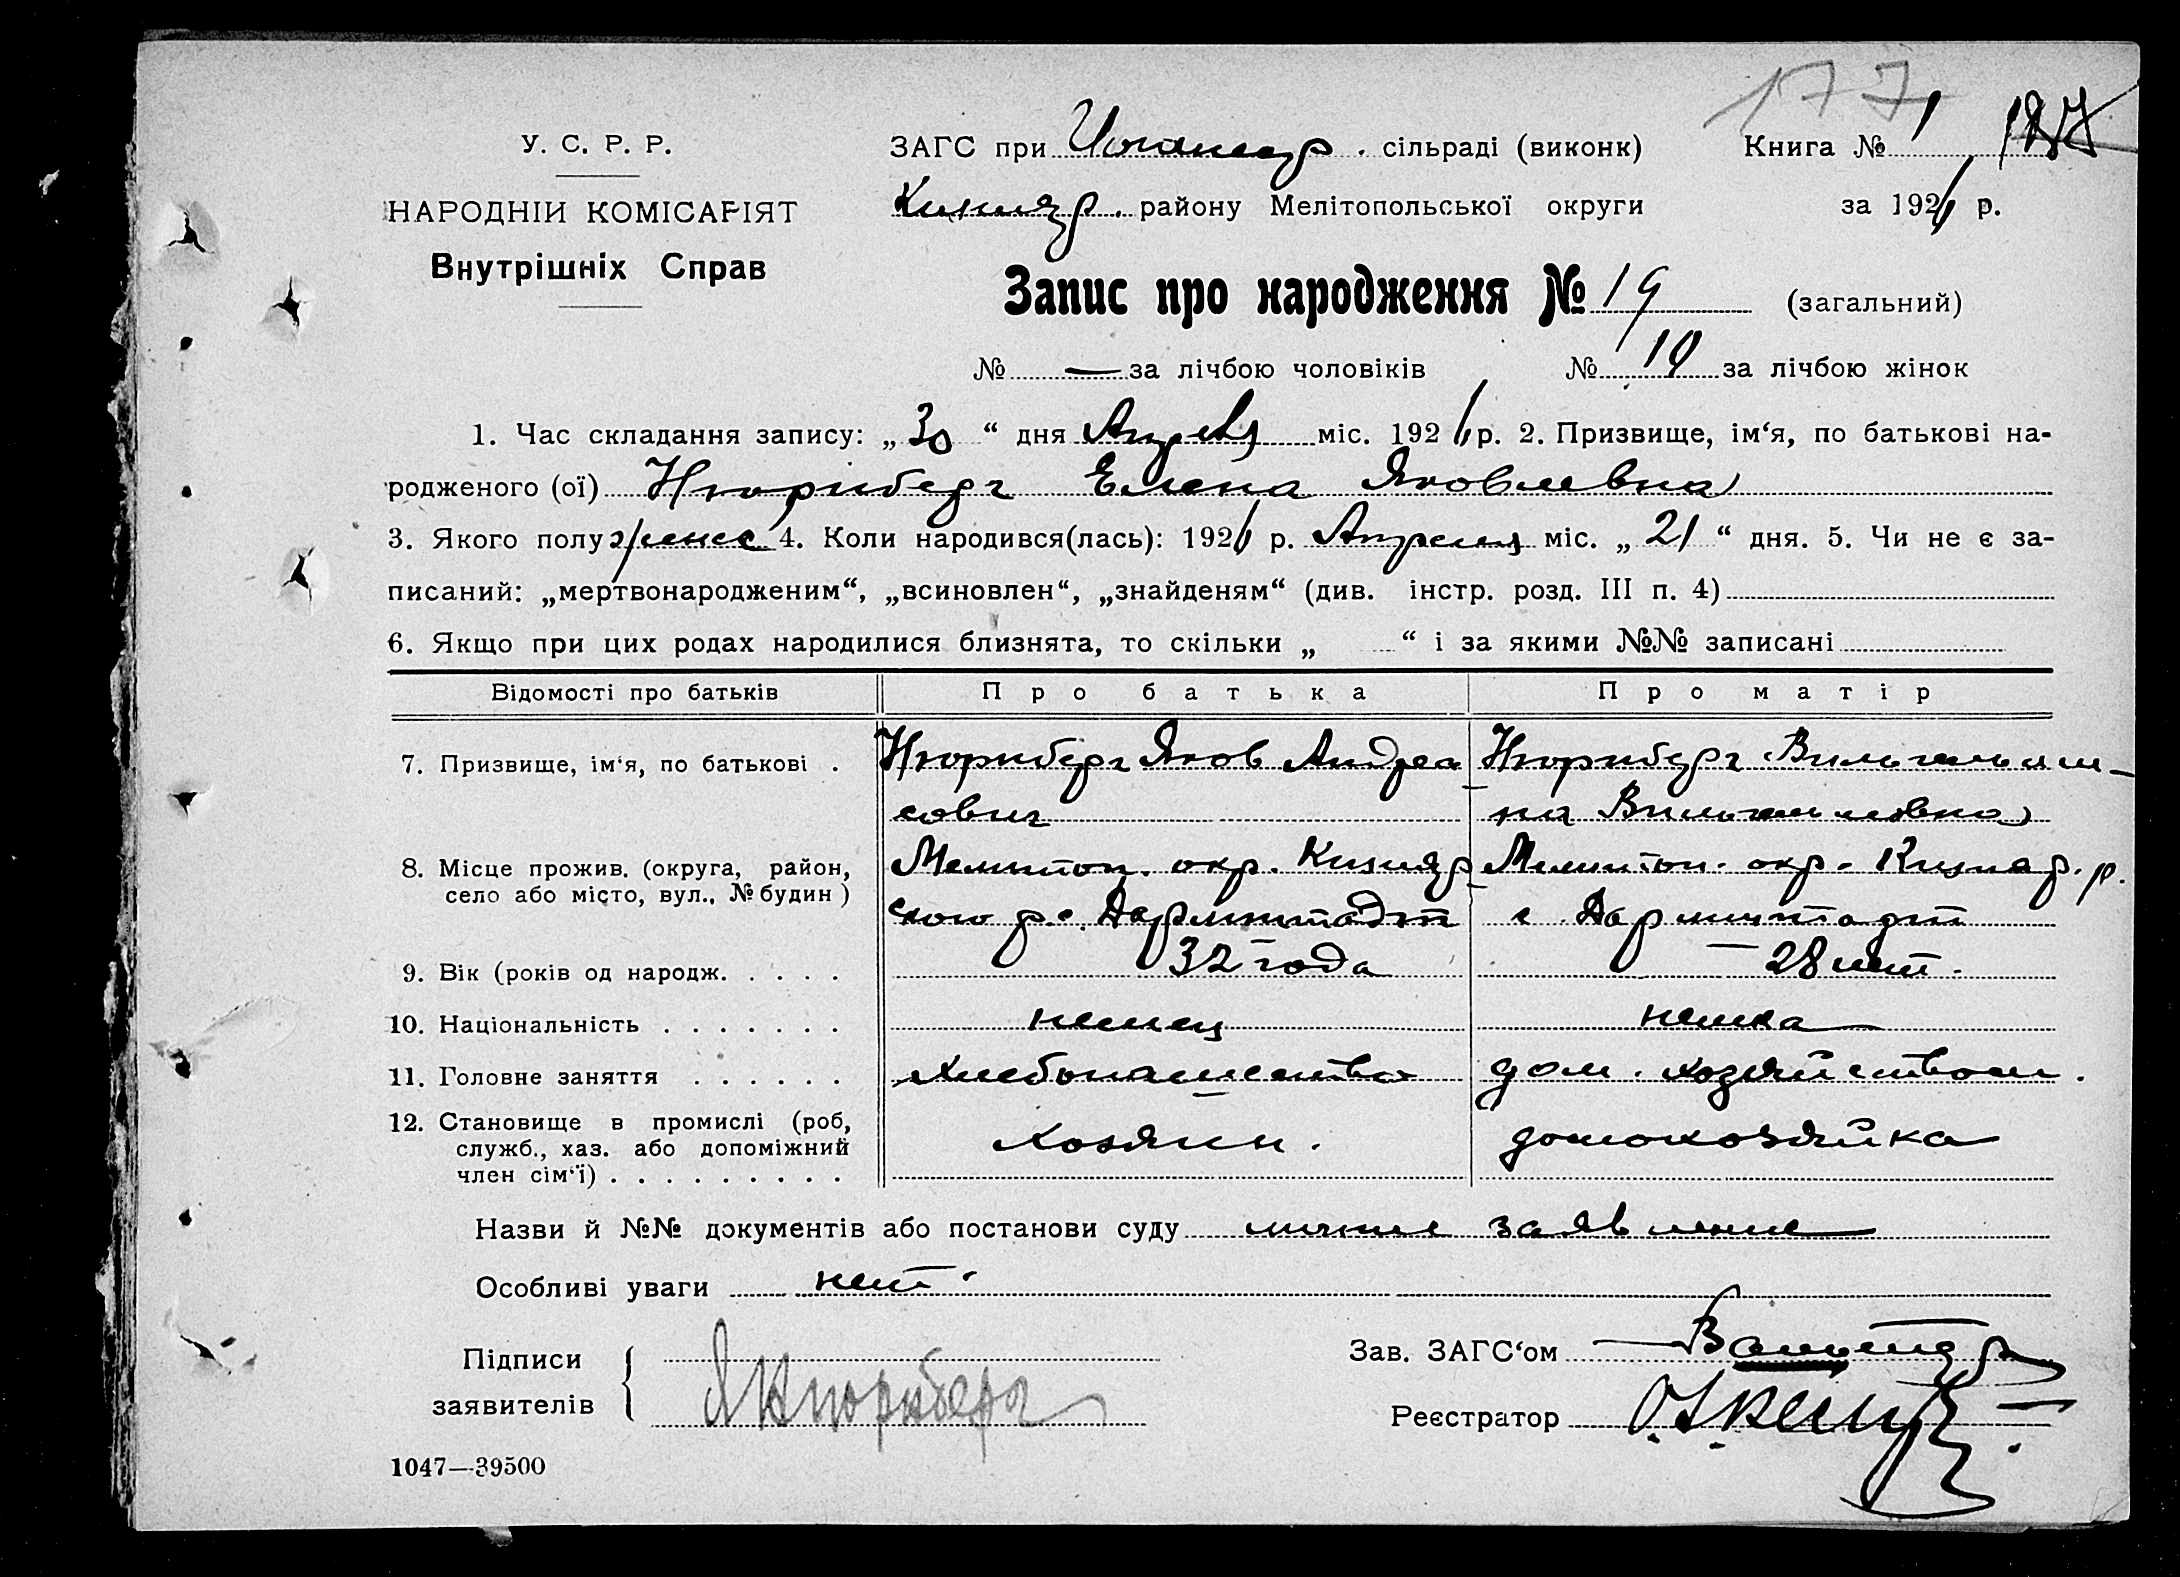 177
У. С. Р. Р.
ЗАГС при сільраді (виконк) Книга № 1
НАРОДНІИ КОМІСАРІЯТ
Кизияр. району Мелітопольської округи за 1926 р.
Внутрішніх Справ
Запис про народження № 19 (загальний)
№ — за лічбою чоловіків № 10 за лічбою жінок
1. Час складання запису: „30“ дня Апреля міс. 1926 р. 2. Призвище, ім‘я, по батькові на-
родженого (ої) Нюрнберг Елена Яковлевна
3. Якого полу женс 4. Коли народився(лась): 1926 р. Апреля міс. „21“ дня. 5. Чи не є за-
писаний: „мертвонародженим“, „всиновлен“, „знайденям“ (див. інстр. розд. III п. 4)
6. Якщо при цих родах народилися близнята, то скільки „ “ і за якими №№ записані
Відомості про батьків Про батька Про матір
7. Призвище, ім‘я, по батькові . Нюрнберг Яков Андреа Нюрнберг Вильгельми-
сович на Вильгельмовна
8. Місце прожив. (округа, район, Мелитоп. окр. Кизияр Мелитоп. окр. Кизияр. р.
село або місто, вул., № будин) ского р. с Дармштадт с Дармштадт
9. Вік (років од народж. . . . . 32 года 28 лет.
10. Національність . . . . . . . немец немка
11. Головне заняття . . . . . . хлебопашество дом. хозяйством.
12. Становище в промислі (роб, хозяин. домохозяйка
служб., хаз. або допоміжний
член сім‘ї) . . . . . . . . .
Назви й №№ документів або постанови суду личное заявление
Особливі уваги нет.
Підписи
заявителів
Я Нюрнберг
Зав. ЗАГС‘ом
Реєстратор
1047—39500